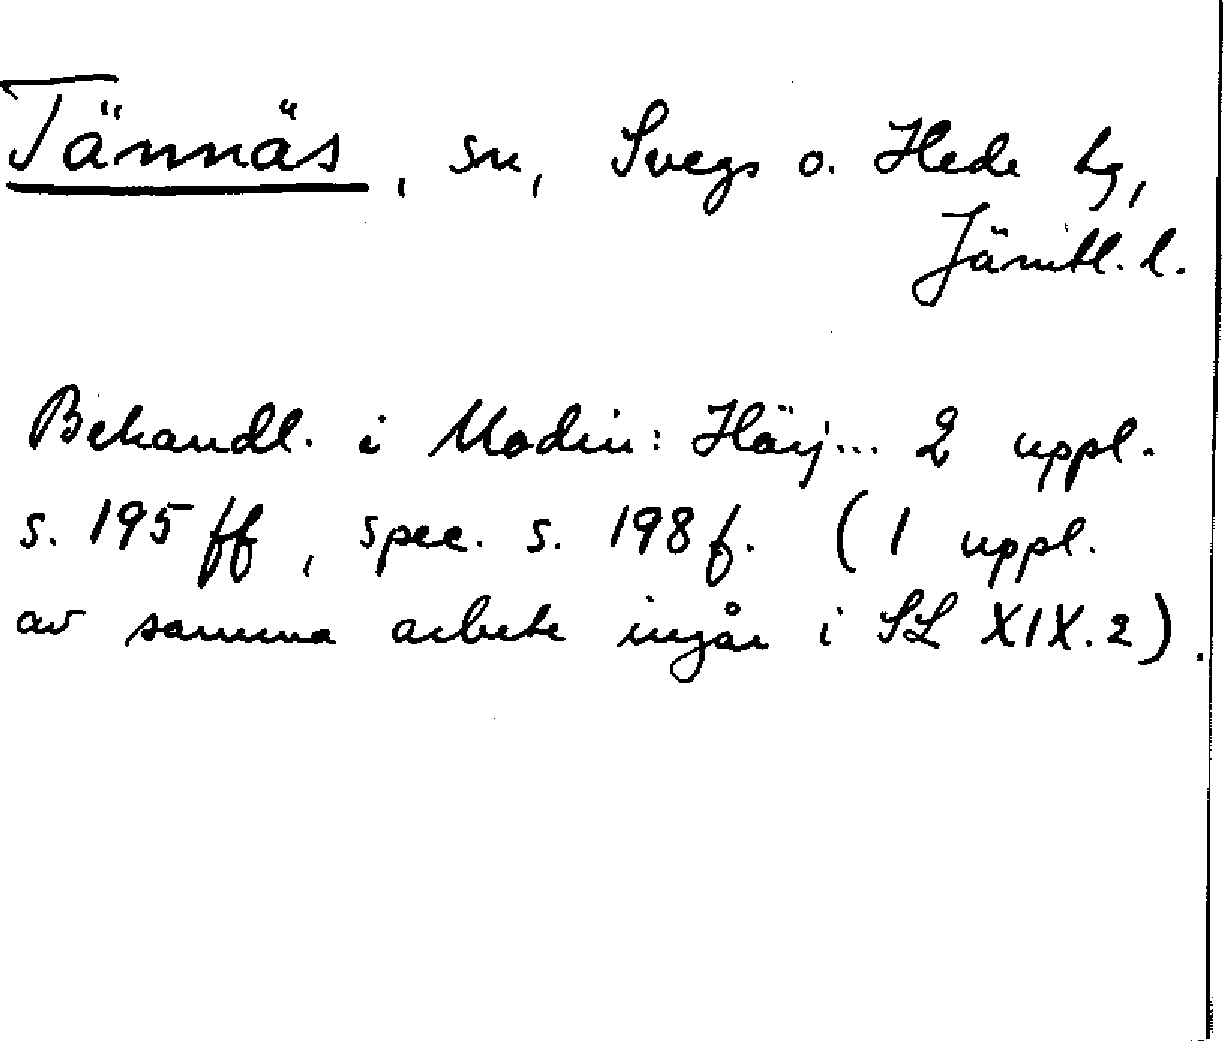 Tännäs, sn, Svegs o. Hede tg,
Jämtl. l.
Behandl. i Modin: Härj... 2 uppl.
s. 195 ff, spec. s. 198 f. (1 uppl.
av samma arbete ingår i SL XIX.2).